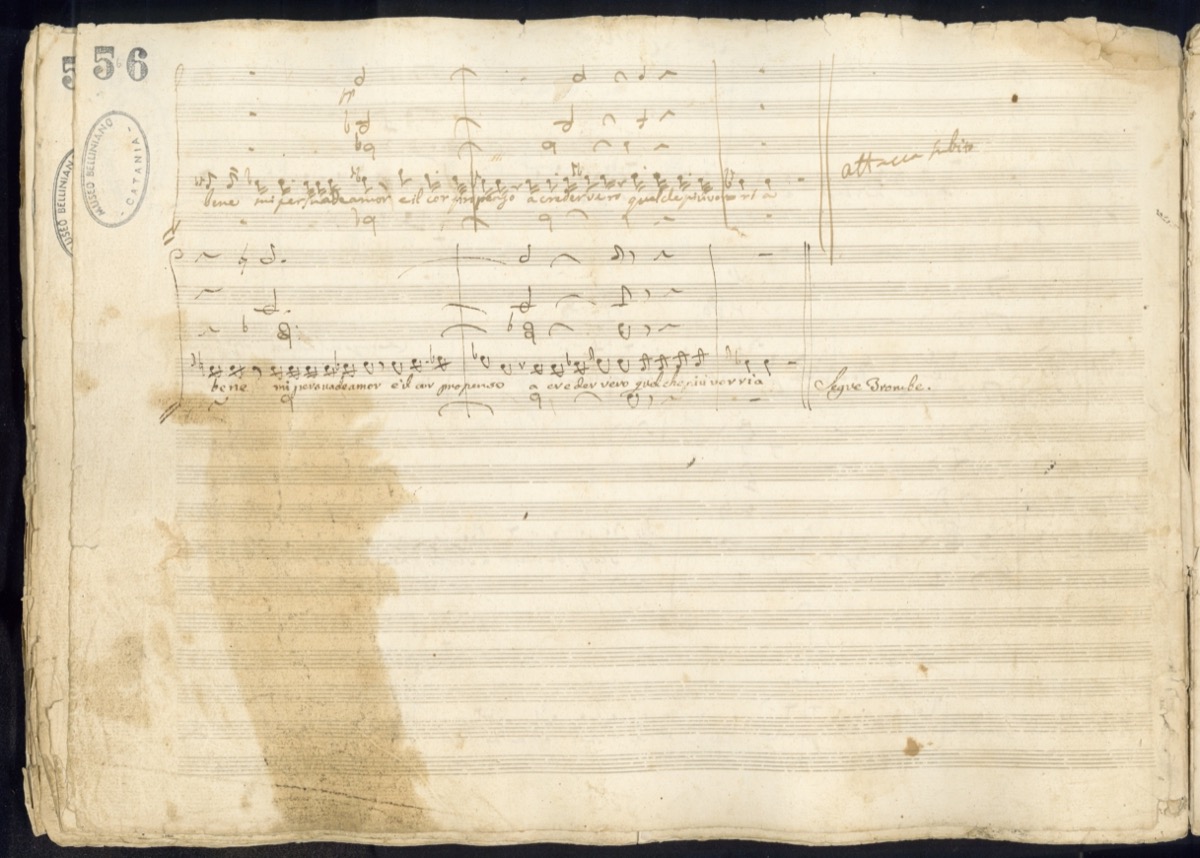 5 56
MUSEO BELLINIANO
- CATANIA -
USEO BELLINIAN
attacca subito
bene mi persuade amor e il cor propenso a creder vero quel che più vorria
bene mi persuade amor e il cor propenso a creder vero quel che più vorria
Segue Trombe.